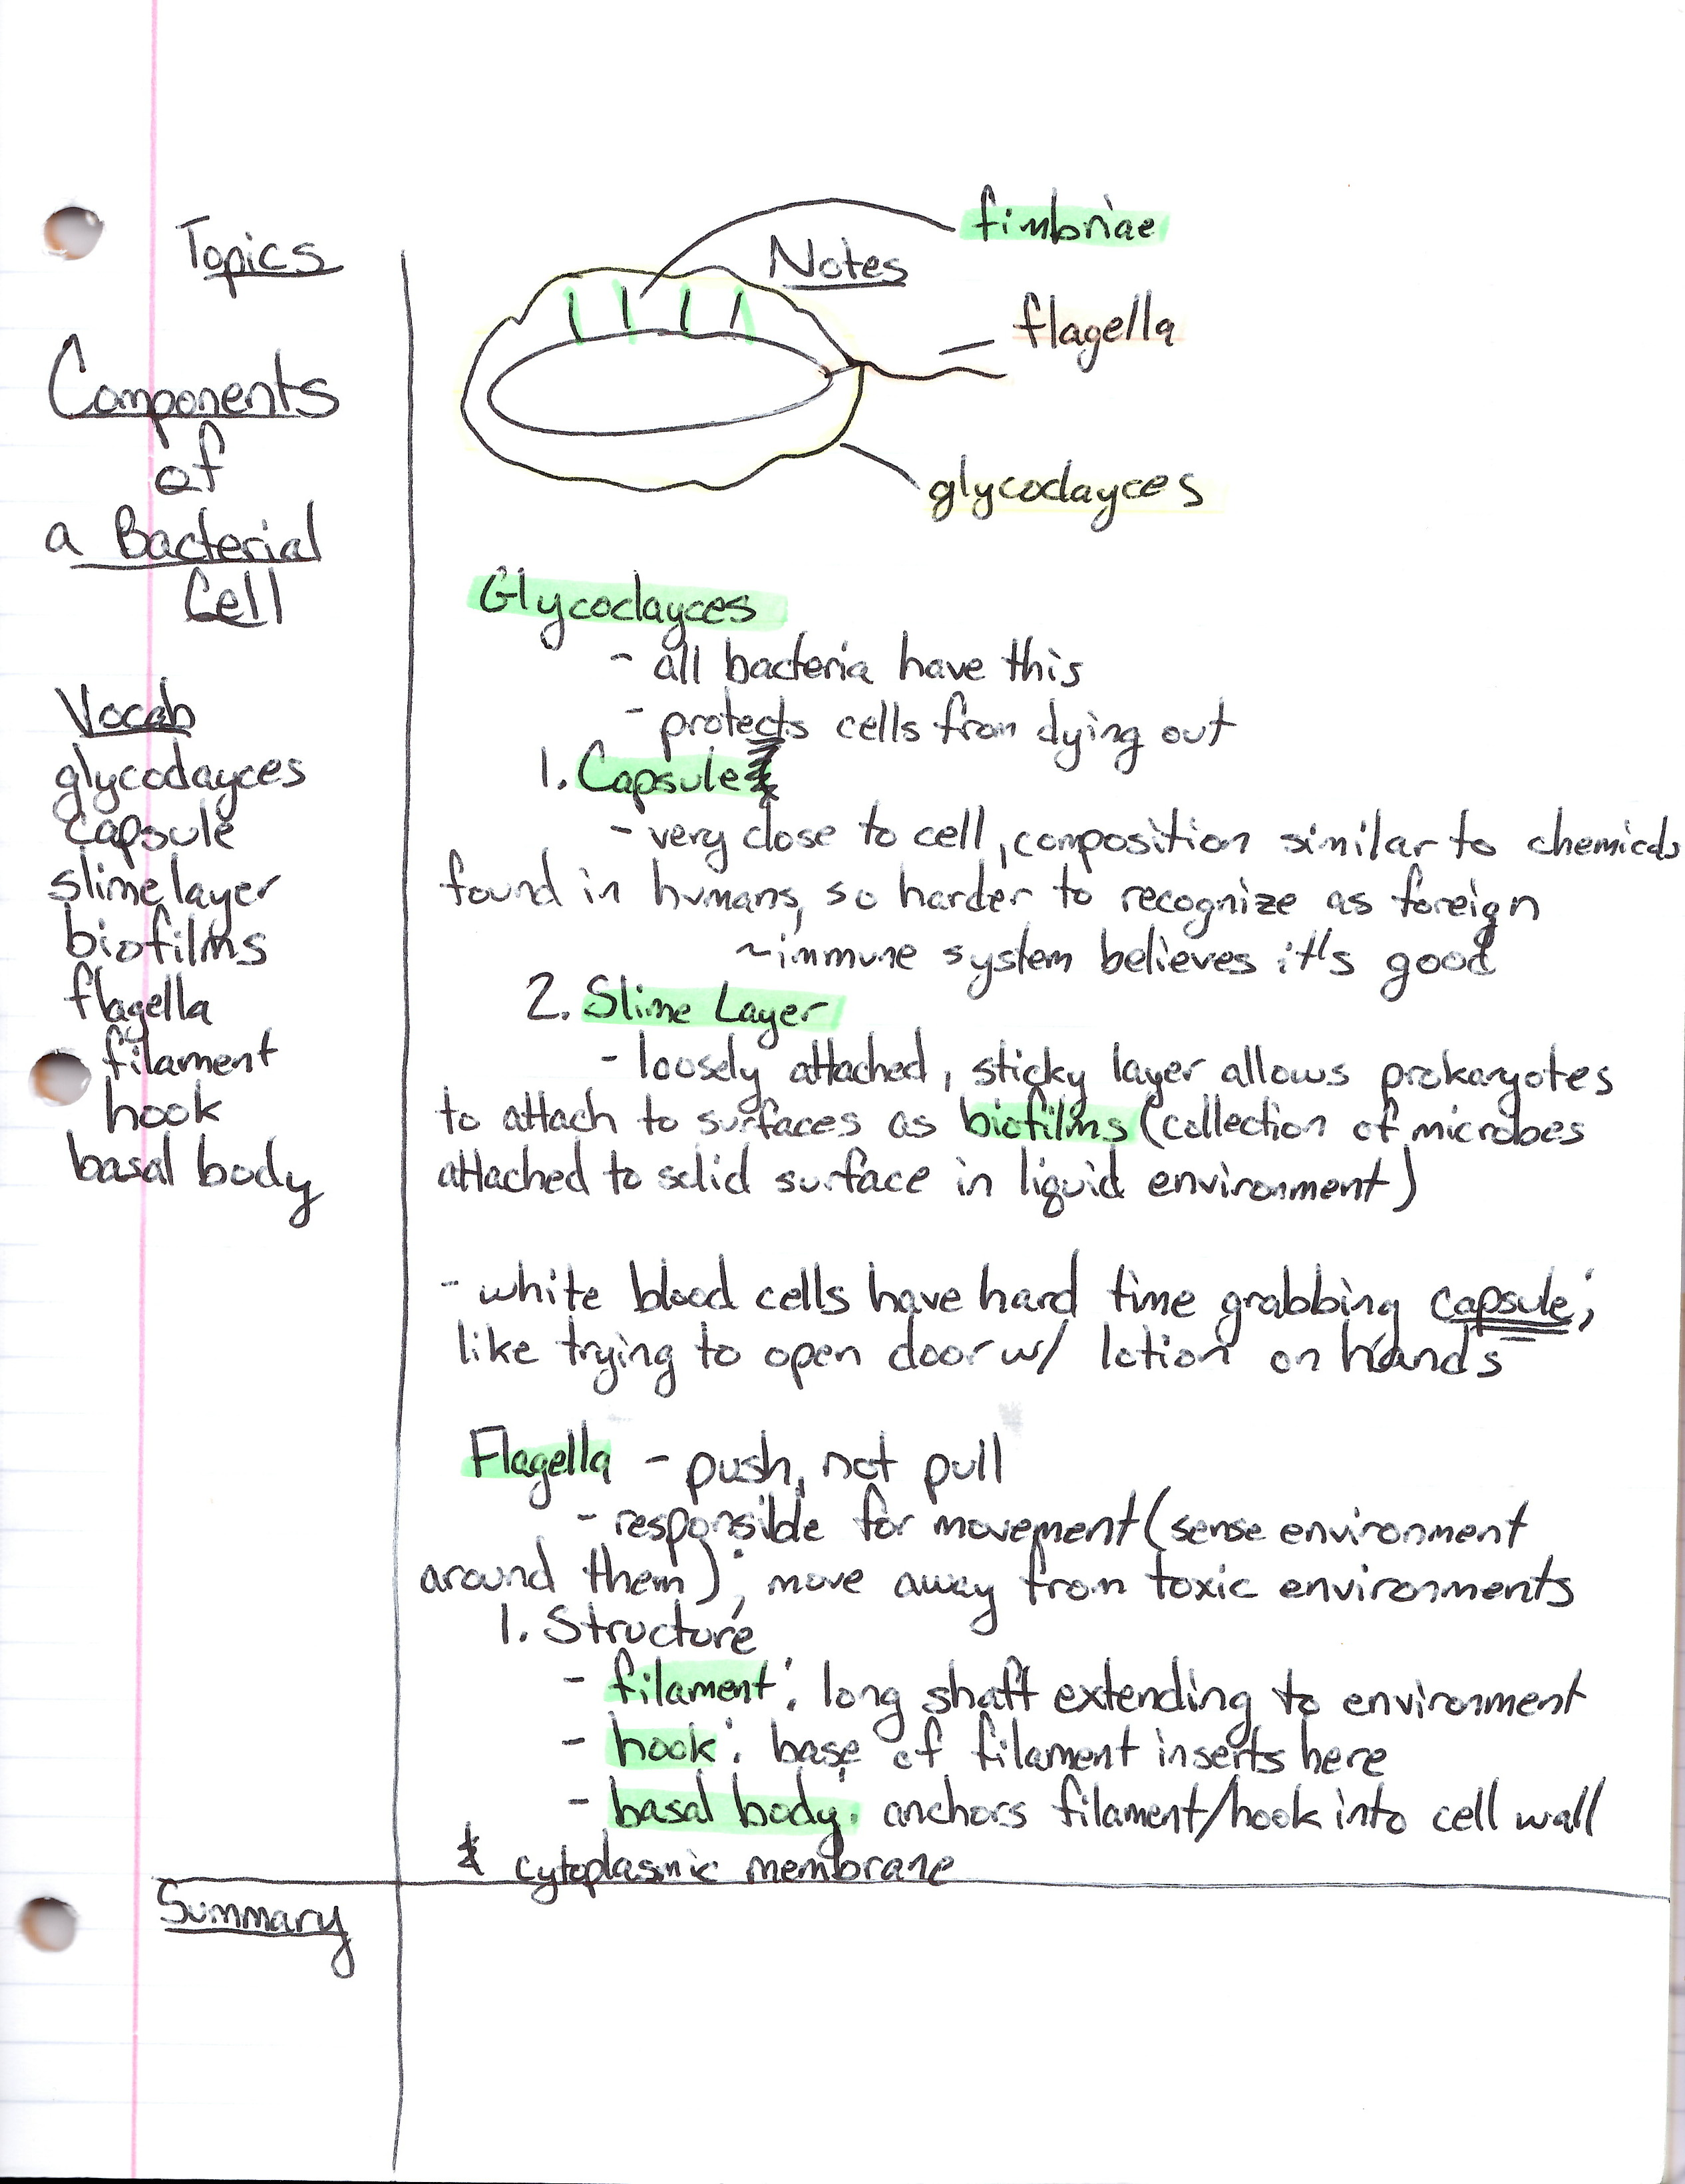 Topics
Components
of
a Bacterial
Cell
Vocab
glycoclayces
capsule
slime layer
biofilms
flagella
filament
hook
basal body
fimbriae
Notes
flagella
glycoclayces
Glycoclayces
- all bacteria have this
- protects cells from dying out
1. Capsule
- very close to cell, composition similar to chemicals
found in humans, so harder to recognize as foreign
~immune system believes it's good
2. Slime Layer
- loosely attached, sticky layer allows prokaryotes
to attach to surfaces as biofilms (collection of microbes
attached to solid surface in liquid environment)
- white blood cells have hard time grabbing capsule;
like trying to open door w/ lotion on hands
Flagella - push, not pull
- responsible for movement (sense environment
around them); move away from toxic environments
1. Structure
- filament: long shaft extending to environment
- hook: base of filament inserts here
- basal body: anchors filament/hook into cell wall
& cytoplasmic membrane
Summary